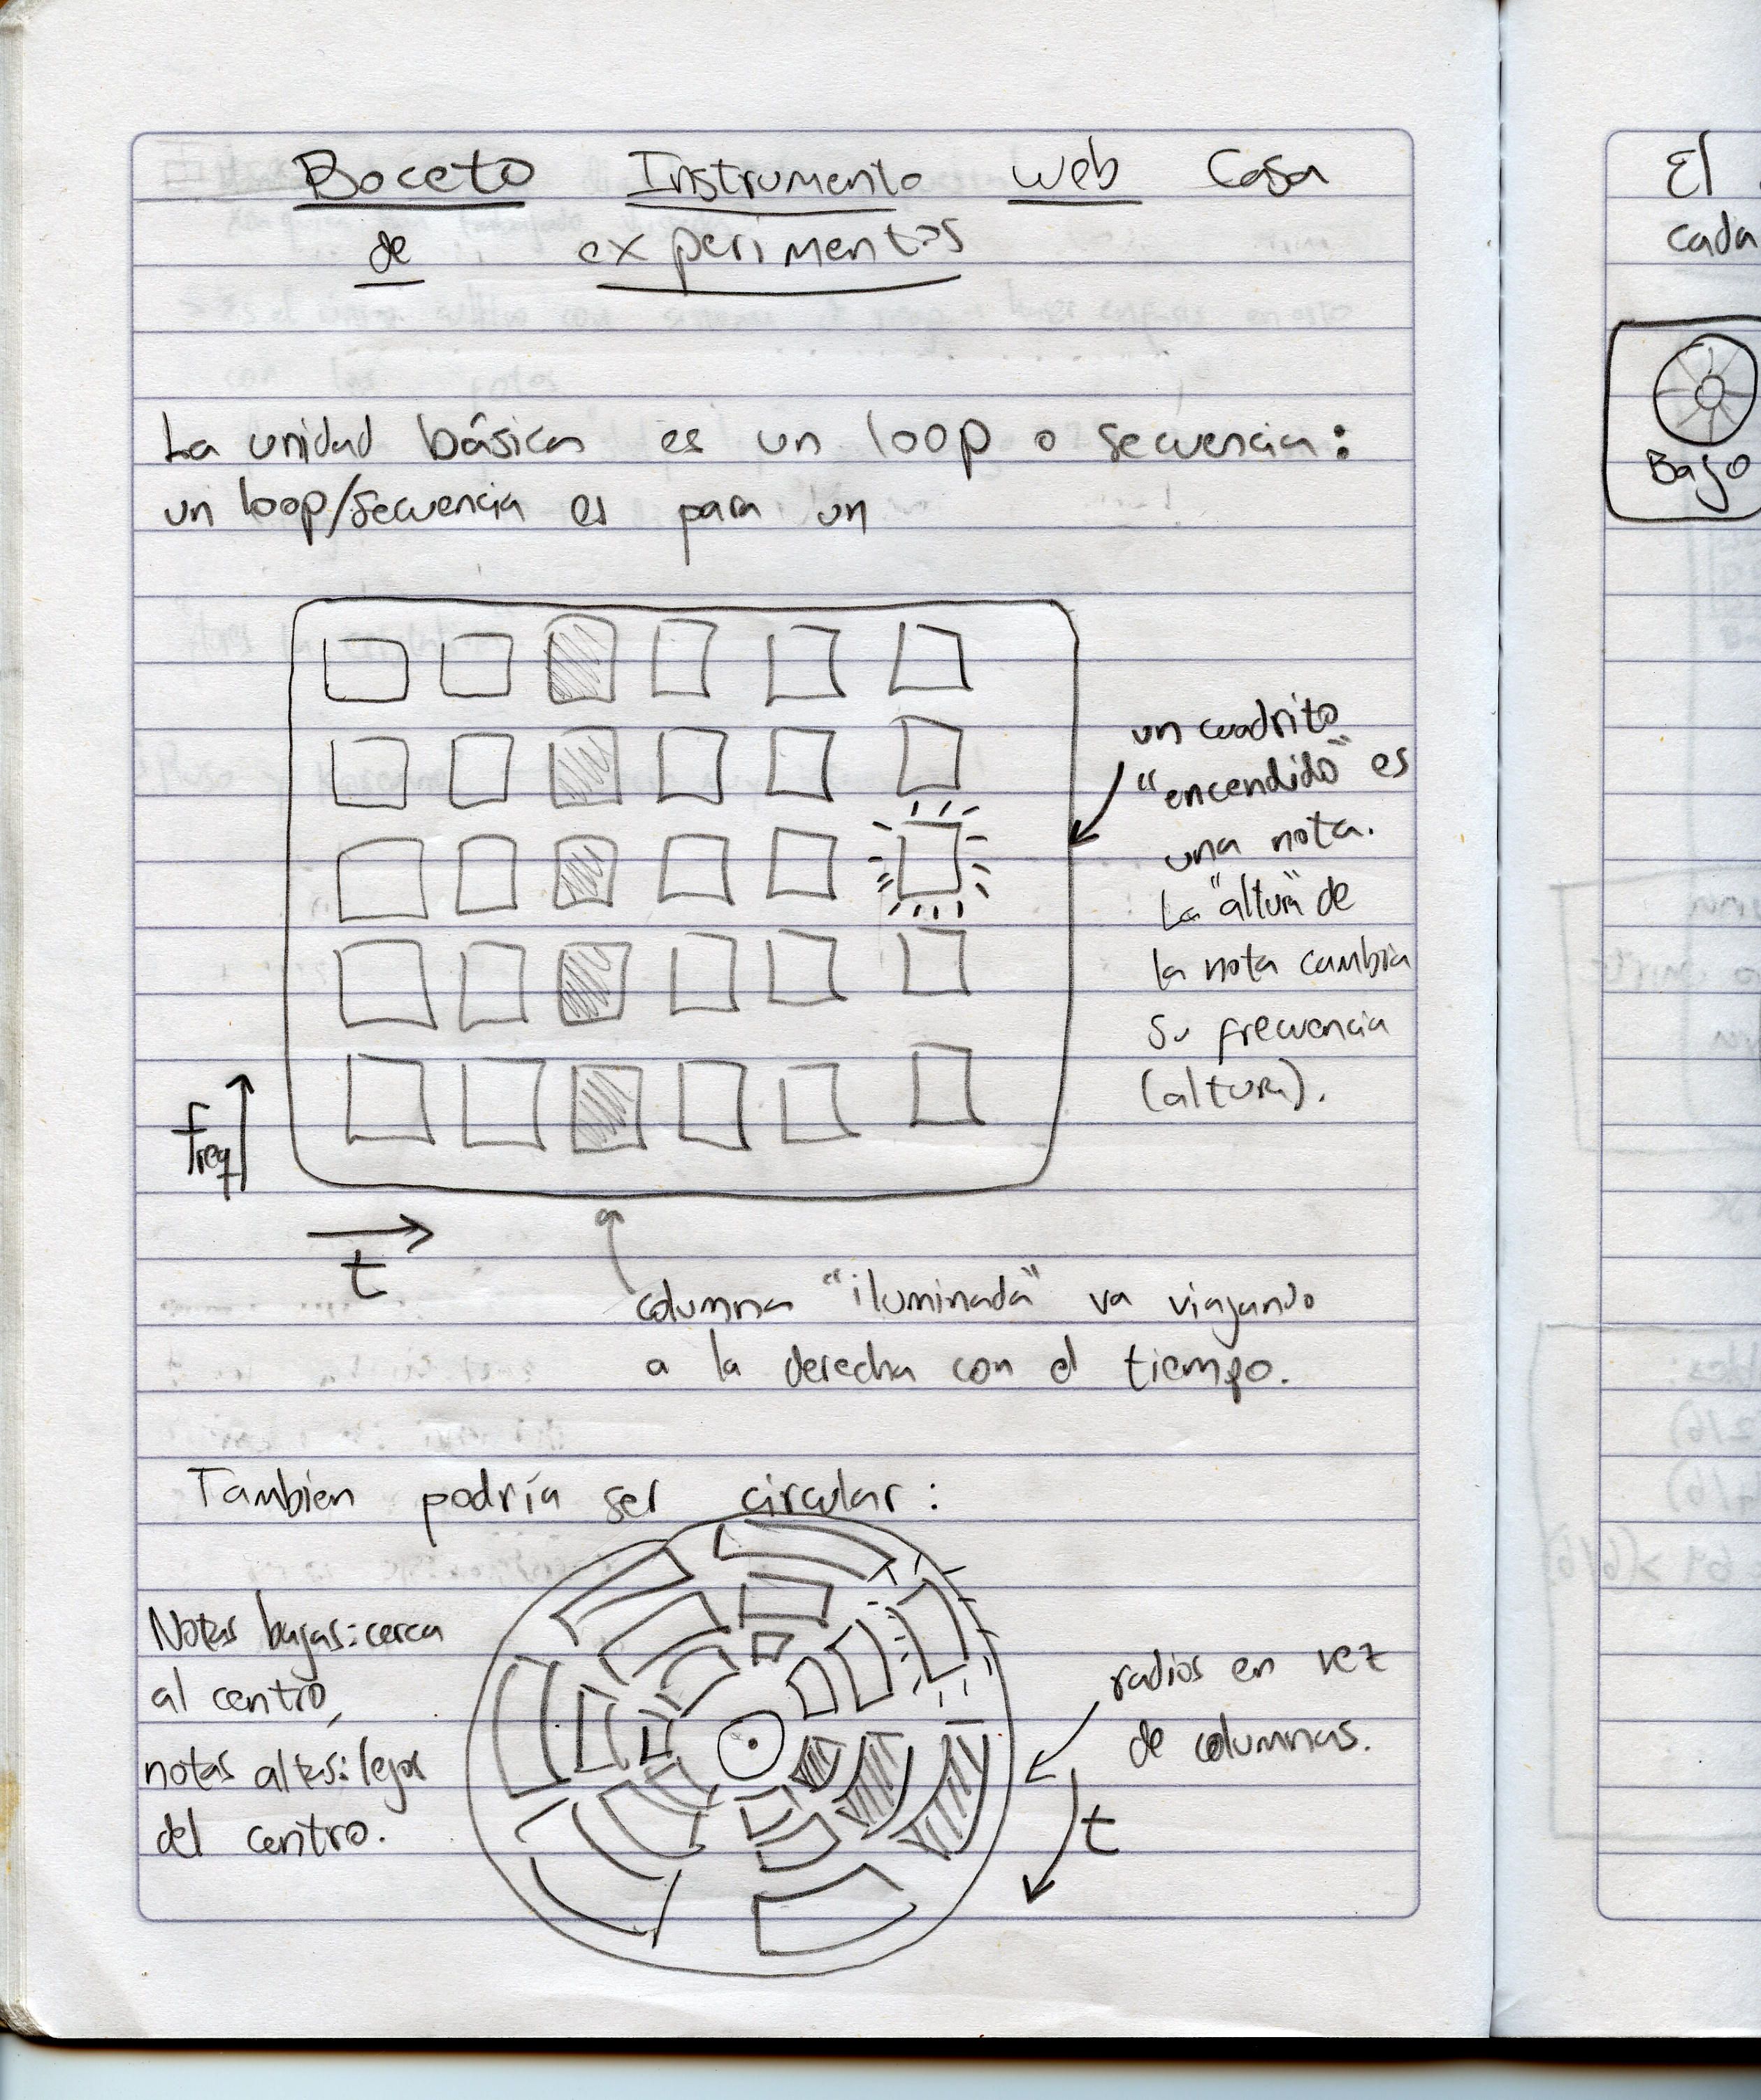 Boceto Instrumento web Casa
de experimentos
La unidad básica es un loop o secuencia:
un loop/secuencia es para un
un cuadrito
"encendido" es
una nota.
La "altura" de
la nota cambia
su frecuencia
(altura).
freq
t
columna "iluminada" va viajando
a la derecha con el tiempo.
Tambien podría ser circular:
Notas bajas: cerca
al centro,
notas altas: lejos
del centro.
radios en vez
de columnas.
t
El
cada
Bajo